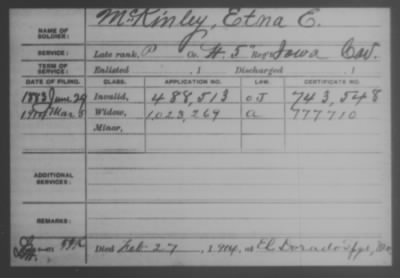 NAME OF SOLDIER: McKinley, Etna E.
SERVICE: Late rank, P Co. H. 5" Reg't Iowa Cav.
TERM OF SERVICE: Enlisted , 1 Discharged , 1
DATE OF FILING. CLASS. APPLICATION NO. LAW. CERTIFICATE NO.
1883 June 29 Invalid, 488,513 O J 743,548
Mar 5 Widow, 1,023,269 a 777,710
Minor,
ADDITIONAL SERVICES:
REMARKS:
Died Feb. 27, 1914, at El Dorado Spgs, Mo